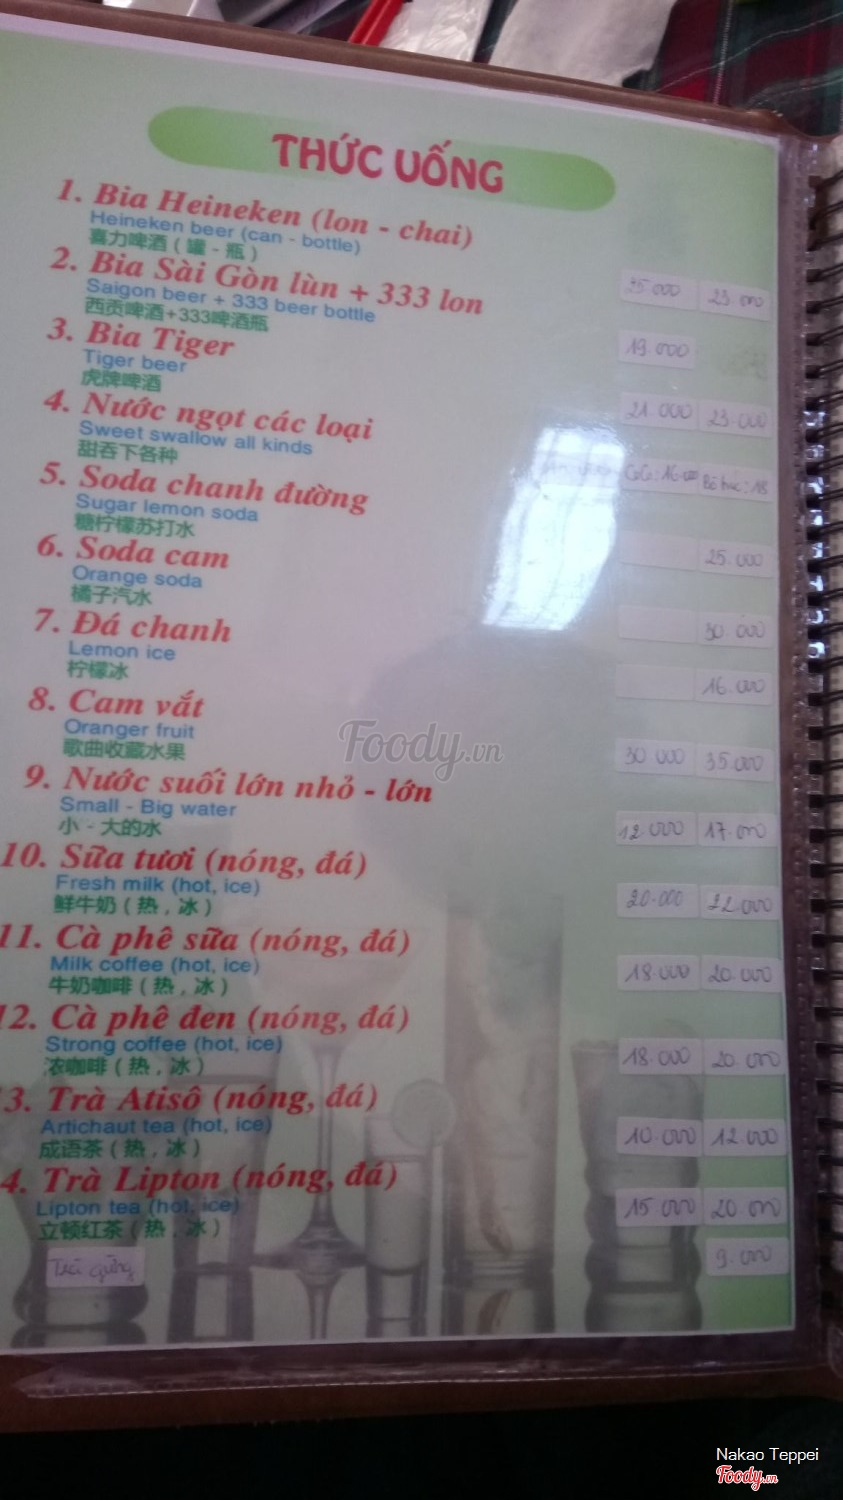 THỨC UỐNG
1. Bia Heineken (lon - chai)
Heineken beer (can - bottle)
喜力啤酒 ( 罐 - 瓶 )
25.000 23.000
2. Bia Sài Gòn lùn + 333 lon
Saigon beer + 333 beer bottle
西贡啤酒+333啤酒瓶
19.000
3. Bia Tiger
Tiger beer
虎牌啤酒
21.000 23.000
4. Nước ngọt các loại
Sweet swallow all kinds
甜吞下各种
CoCa: 16.000 Bò húc: 18
5. Soda chanh đường
Sugar lemon soda
糖柠檬苏打水
25.000
6. Soda cam
Orange soda
橘子汽水
30.000
7. Đá chanh
Lemon ice
柠檬冰
16.000
8. Cam vắt
Oranger fruit
歌曲收藏水果
30.000 35.000
9. Nước suối lớn nhỏ - lớn
Small - Big water
小 - 大的水
12.000 17.000
10. Sữa tươi (nóng, đá)
Fresh milk (hot, ice)
鲜牛奶 ( 热 , 冰 )
20.000 22.000
11. Cà phê sữa (nóng, đá)
Milk coffee (hot, ice)
牛奶咖啡 ( 热 , 冰 )
18.000 20.000
12. Cà phê đen (nóng, đá)
Strong coffee (hot, ice)
浓咖啡 ( 热 , 冰 )
18.000 20.000
3. Trà Atisô (nóng, đá)
Artichaut tea (hot, ice)
成语茶 ( 热 , 冰 )
10.000 12.000
4. Trà Lipton (nóng, đá)
Lipton tea (hot, ice)
立顿红茶 ( 热 , 冰 )
15.000 20.000
Trà gừng 9.000
Foody.vn
Nakao Teppei
Foody.vn